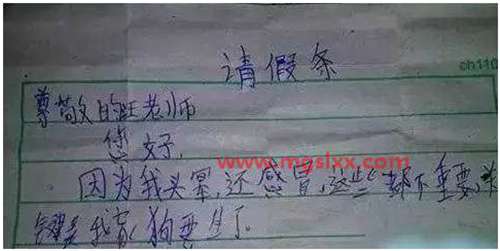 请假条
ch110
尊敬的旺老师
您好,
www.mgslxx.com
因为我头晕,还感冒,这些都不重要,关
键是我家狗要生了。